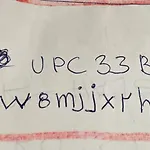 UPC 33 B
w8mjjxrh